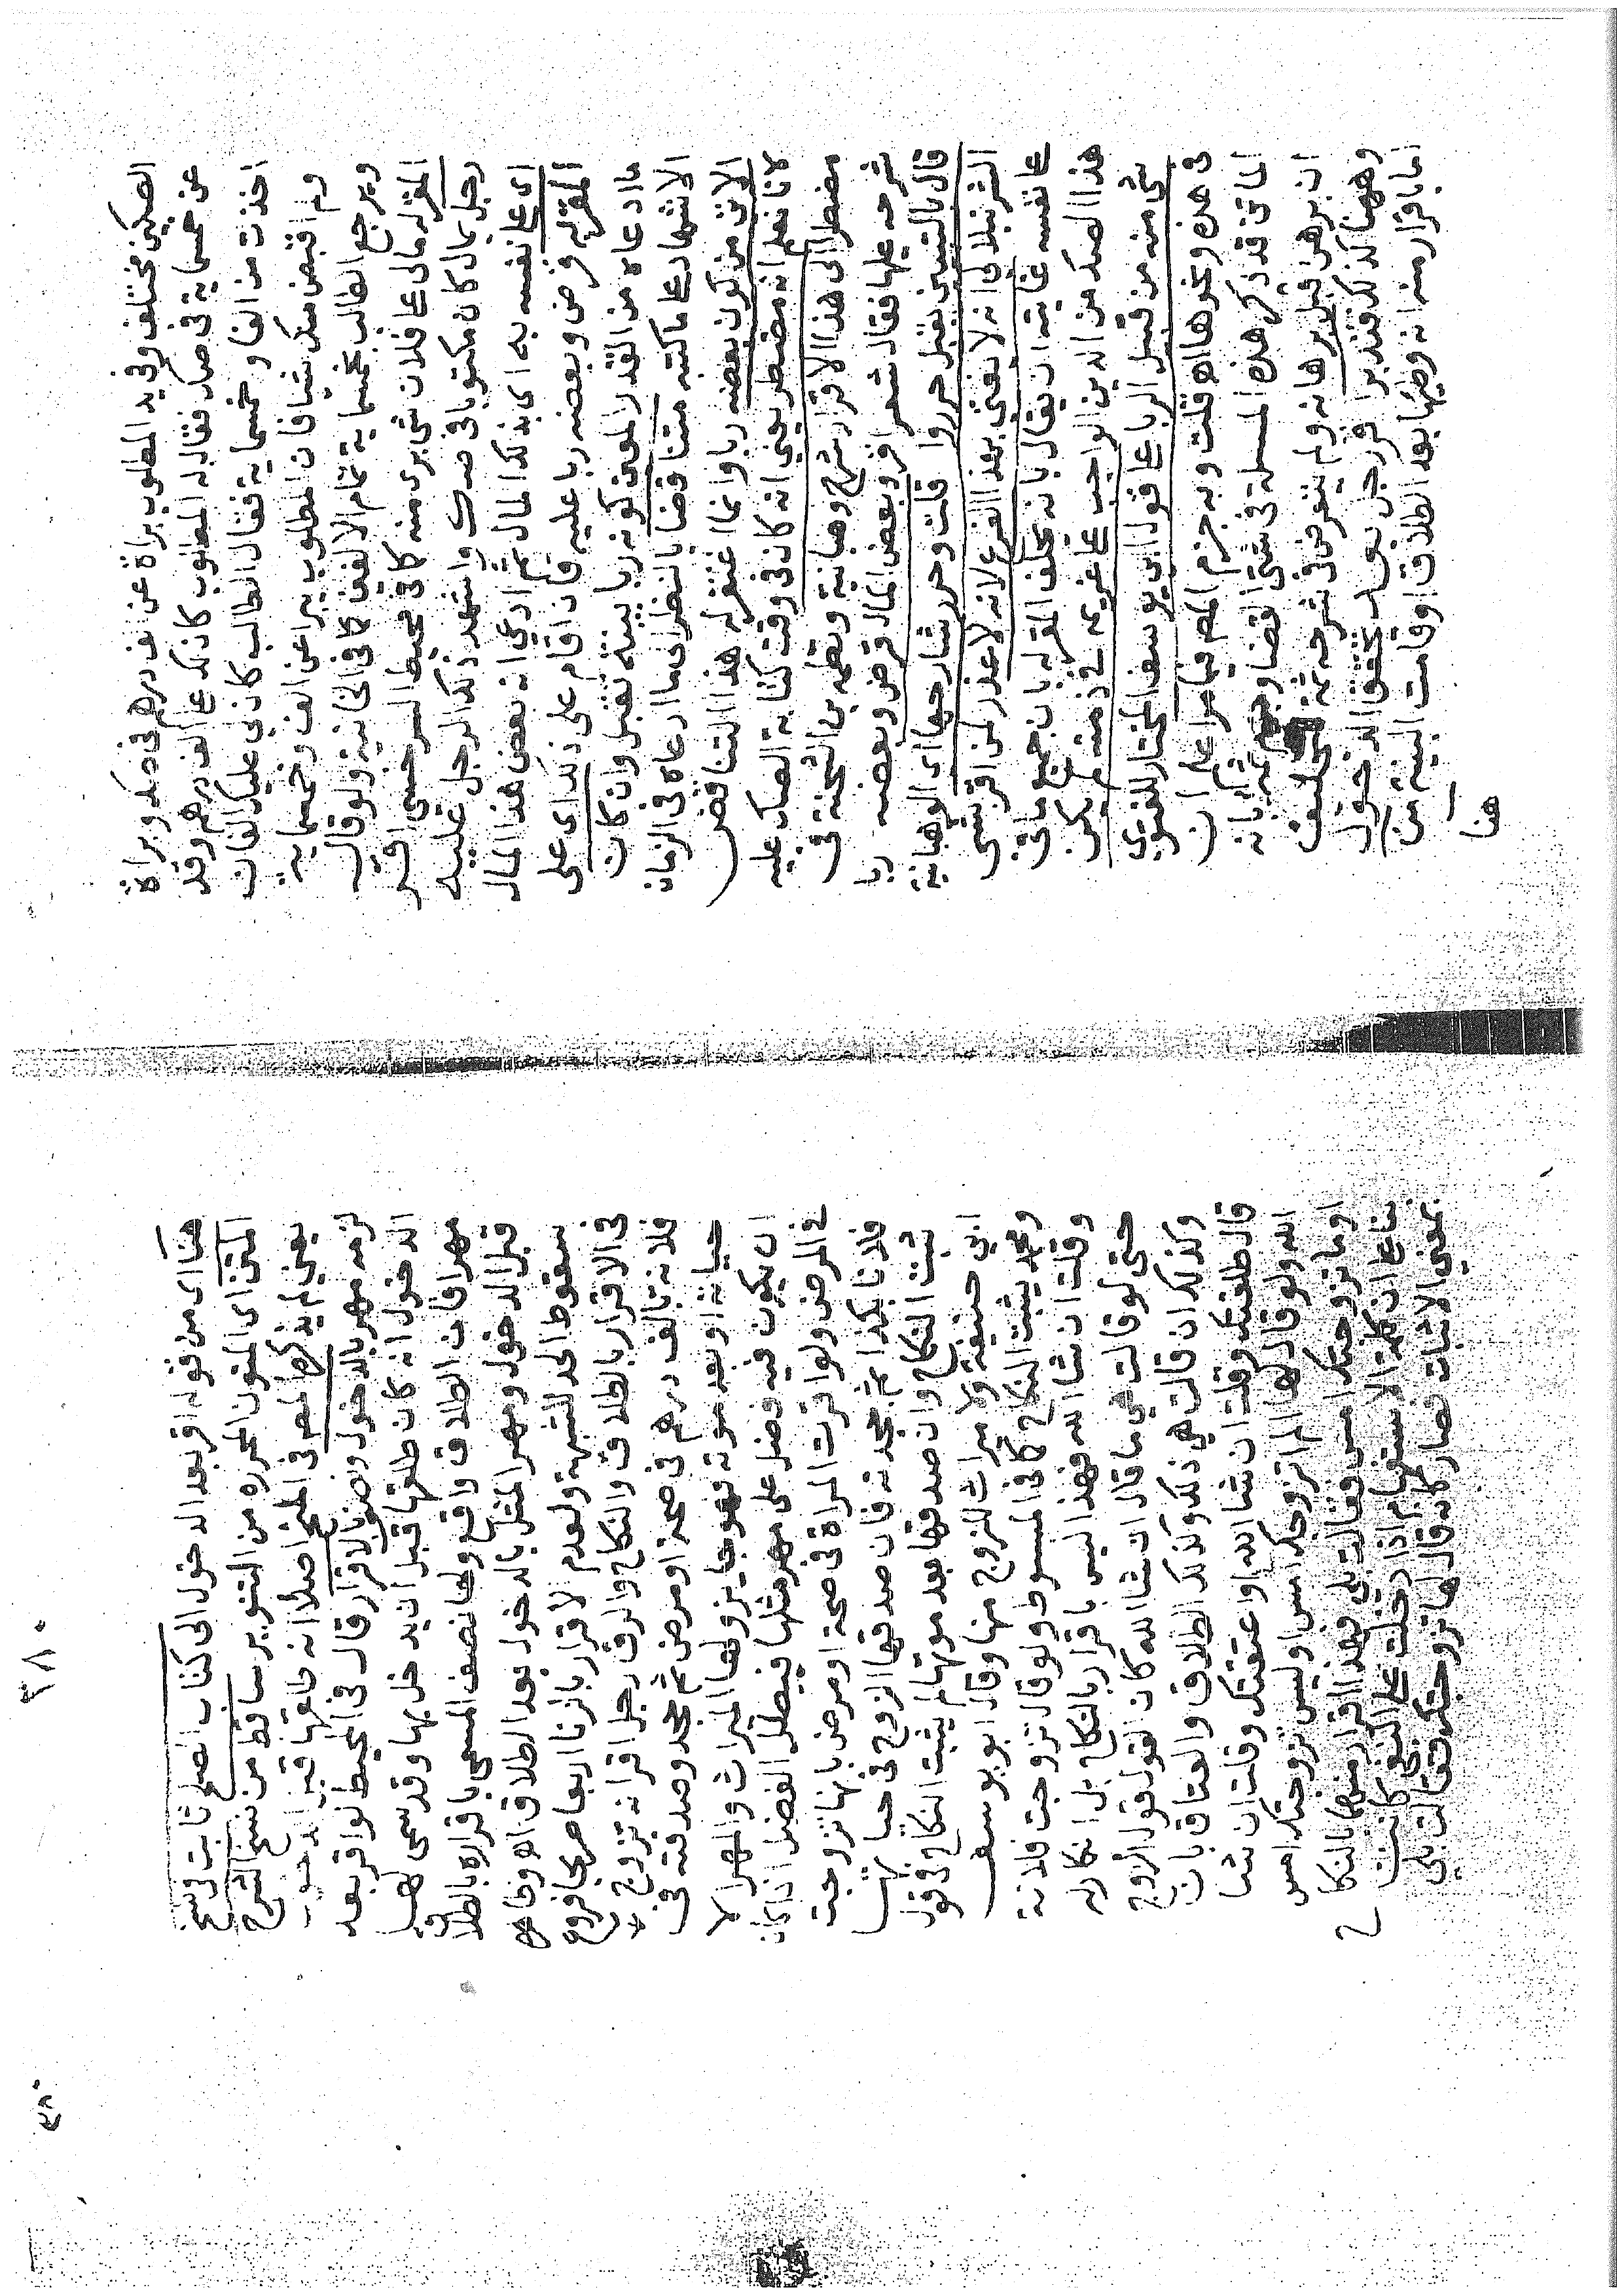 الصكين مختلف وفى يد المطلوب براة عن الف درهم فى صك وبراة
عن خمسماية فى صك فقال له المطلوب كان لك على الف درهم وقد
اخذت من الفا وخمسماية فقال الطالب كان لي عليك الفان
ولم اقبض منك شيا فان المطلوب يبرا عن الف وخمسماية
ويرجع الطالب بخمسماية تمام الالفين كما فى الخانية ولوقال
المقر له مالى على فلان شى برى منه كما في محيط السرخسى اقر
رجل بمال كان مكتوبا فى صك واشهد ذلك الرجل عليه
اى على نفسه به اى بذلك المال ثم ادعى ان بعض هذا المال
المقر به قرض وبعضه ربا عليه فان اقام على ذلك اى على
ما ادعاه من القدر المعين كونه ربا بينة تقبل وان كان
الاشهاد على ما كتبه متناقضا بالنظر الى ما ادعاه فى الزمان
الاتى من كون بعضه ربا وانما اغتفر له هذا التناقض
لانا نعلم انه مضطر يعنى انه كان فى وقت كتابة الصك عليه
مضطرا الى هذا الاقرار شرح وهبانية ونظمه بن الشحنة فى
شرحه عليها فقال شعر اقر وبعض المال قرض وبعضه ربا
قال بالتبيين تقبل حرروا قلت وحرر شارحها اى الوهبانية
الشرنبلالى انه لا يفتى بهذا الفرع لانه لا عذر لمن اقر بشى
على نفسه غايته ان يقال بانه يحلف المقر له بان جميع مافى
هذا الصك من الدين الواجب على غريمه فى ذمته لم يكن
شى منه من قبل الربا على قول ابى يوسف المختار للفتوى
فى هذه ونحوها اه قلت وبه جزم المص فيما مر اعلم ان
الماتن قد ذكر هذه المسلة فى شتى القضا وجزم ثمه بانه
ان برهن قبل برهانه ولم يتعرض فى شرحه ثمه لتحليف
وههنا كذلك فتدبر اقر رجل بعد تحقق الدخول
اما باقرار منه انه وطيها بعد الطلاق او قامت البينة من
هنا
٣٨٠
هنا اى من قوله اقر بعد الدخول الى كتاب الصلح ثابت فى نسخ
المتن اى المتون المجرده من التنوير ساقط من نسخ الشرح
يعنى لم يذكرها المص فى المنح اصلا انه طلقها قبل الدخول
لزمه مهر بالدخول ونصف بالاقرار قال فى المحيط لو اقر بعد
الدخول انه كان طلقها قبل ان يدخل بها وقد سمى لها
مهرا فان الطلاق واقع ولها نصف المسمى باقراره بالطلاق
قبل الدخول ومهر المثل بالدخول بعد الطلاق اه وظاهره
سقوط الحد للشبهة ولعدم الاقرار بالزنا اربعا صريحا فروع
فى الاقرار بالطلاق والنكاح والرق رجل اقر انه تزوج
فلانة بالف درهم فى صحة او مرض ثم جحد وصدقته فى
حياته او بعد موته فهو جايز ولها الميراث والمهر الا
ان يكون فيه فضل على مهر مثلها فيبطل الفضل اذا كان
فى المرض ولو اقرت المراة فى صحة او مرض بانها تزوجت
فلانا بكذا ثم جحدته فان صدقها الزوج فى حياتها
يثبت النكاح وان صدقها بعد موتها لم يثبت النكاح فى قول
ابى حنيفة ولا ميراث للزوج منها وقال ابو يوسف
ومحمد يثبت النكاح كما فى المبسوط ولو قال تزوجت فلانة
وقلت ان شا الله فهذا ليس باقرار بالنكاح بل انكار له
حتى لو قالت هى ما قال ان شا الله كان القول قول الزوج
وكذلك ان قالت هى ذلك وكذلك الطلاق والعتاق بان
قال طلقتك وقلت ان شا الله او اعتقتك وقلت ان شا
الله ولو قال لها الم اتزوجك امس اوليس تزوجتك امس
او ما تزوجتك امس فقالت بلى فهذا اقرار منهما بالنكاح
بنا على ان كلمة الاستفهام اذا دخلت على النفى كانت
بمعنى الاثبات فصار كانه قال لها تزوجتك فقالت بلى
٣٨٠